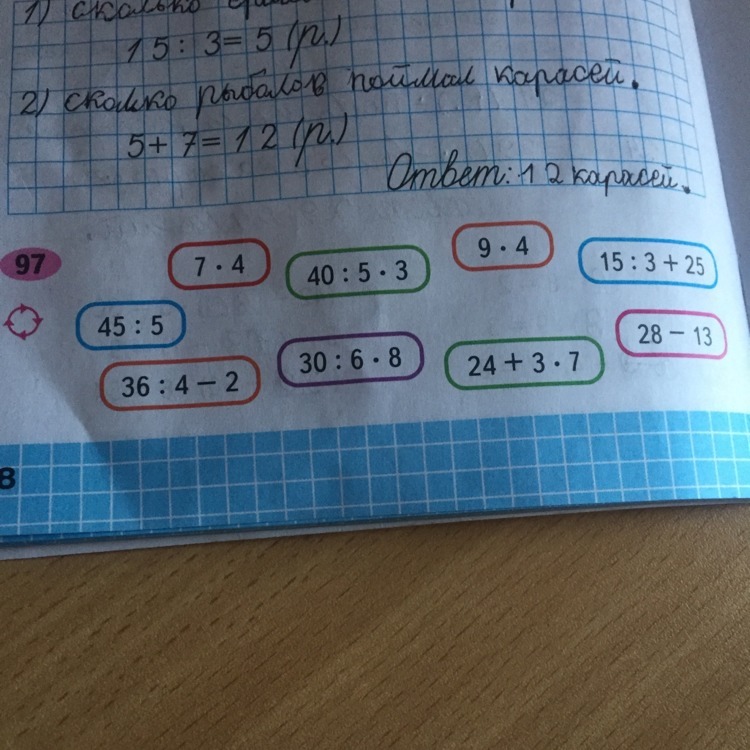 1) сколько
15 : 3 = 5 (р.)
2) сколко рыбалов поймал карасей.
5 + 7 = 12 (р.)
Ответ: 12 карасей.
97
7 · 4
40 : 5 · 3
9 · 4
15 : 3 + 25
45 : 5
36 : 4 − 2
30 : 6 · 8
24 + 3 · 7
28 − 13
8